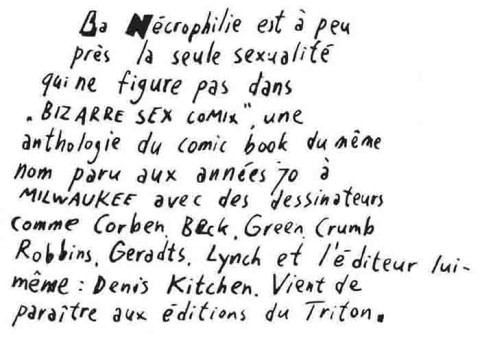 La Nécrophilie est à peu
près la seule sexualité
qui ne figure pas dans
"BIZARRE SEX COMIX", une
anthologie du comic book du même
nom paru aux années 70 à
MILWAUKEE avec des dessinateurs
comme Corben, Beck, Green, Crumb
Robbins, Geradts, Lynch et l'éditeur lui-
même : Denis Kitchen. Vient de
paraître aux éditions du Triton.